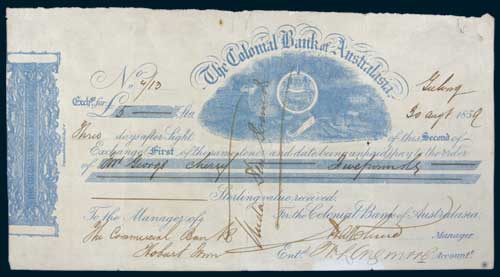 The Colonial Bank of Australasia
No. 4/13 Geelong
Exchge. for £5 Stg 30 augt 1859
Three days after Sight of this Second of
Exchange First of the same tenor and date being unpaid pay to the order
of Mr George Five pounds Stg
Sterling value received.
To the Manager of For the Colonial Bank of Australasia.
The Commercial Bank Manager
Hobart Town Entd. Accountt.